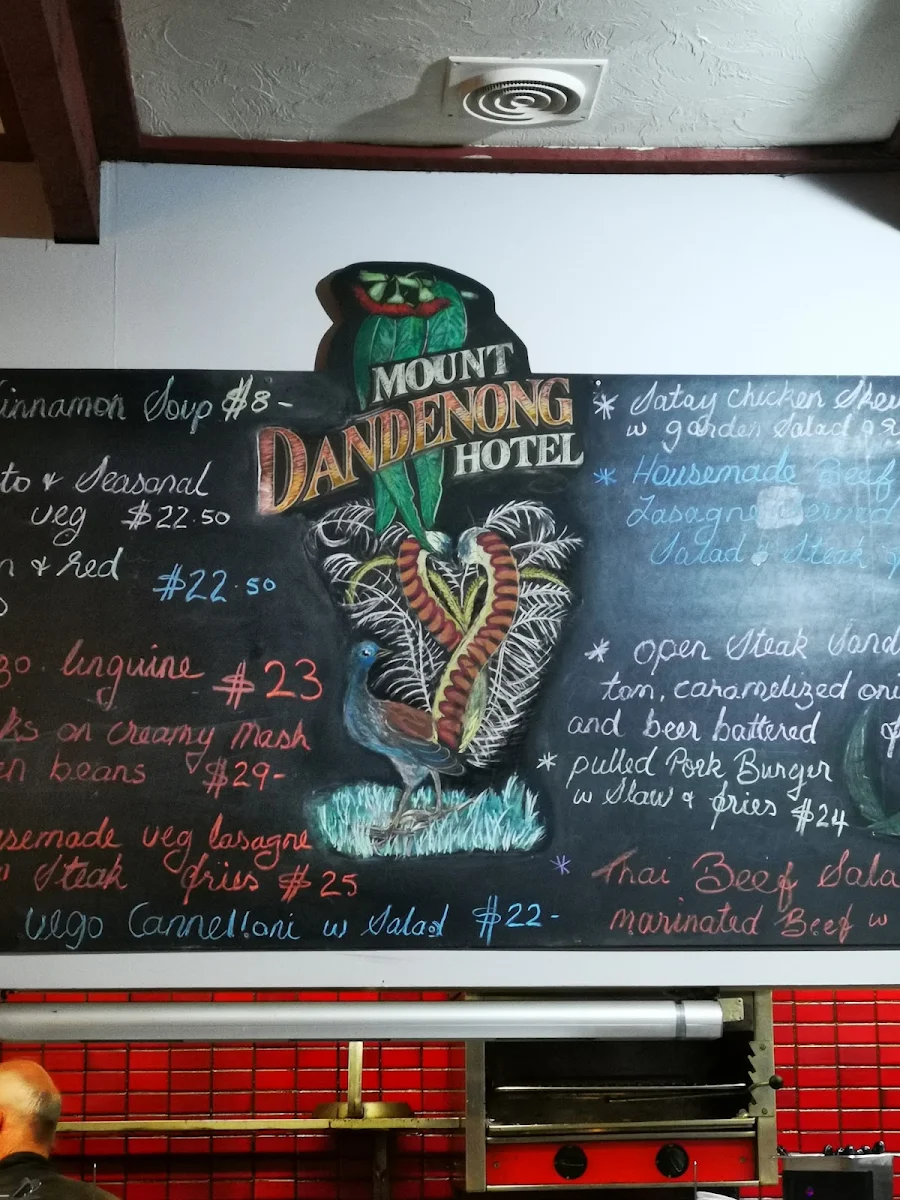 innamon Soup $8-
to & Seasonal
veg $22.50
n & red
$22.50
go linguine $23
ks on creamy mash
en beans $29-
semade veg lasagne
Steak fries $25
vego Cannelloni w Salad $22-
MOUNT
DANDENONG
HOTEL
* Satay chicken Skew
w garden Salad
* Housemade Beef
Lasagne
Salad & Steak
* open Steak Sand
tom, caramelized oni
and beer battered
* pulled Pork Burger
w Slaw & fries $24
* Thai Beef Sala
marinated Beef w